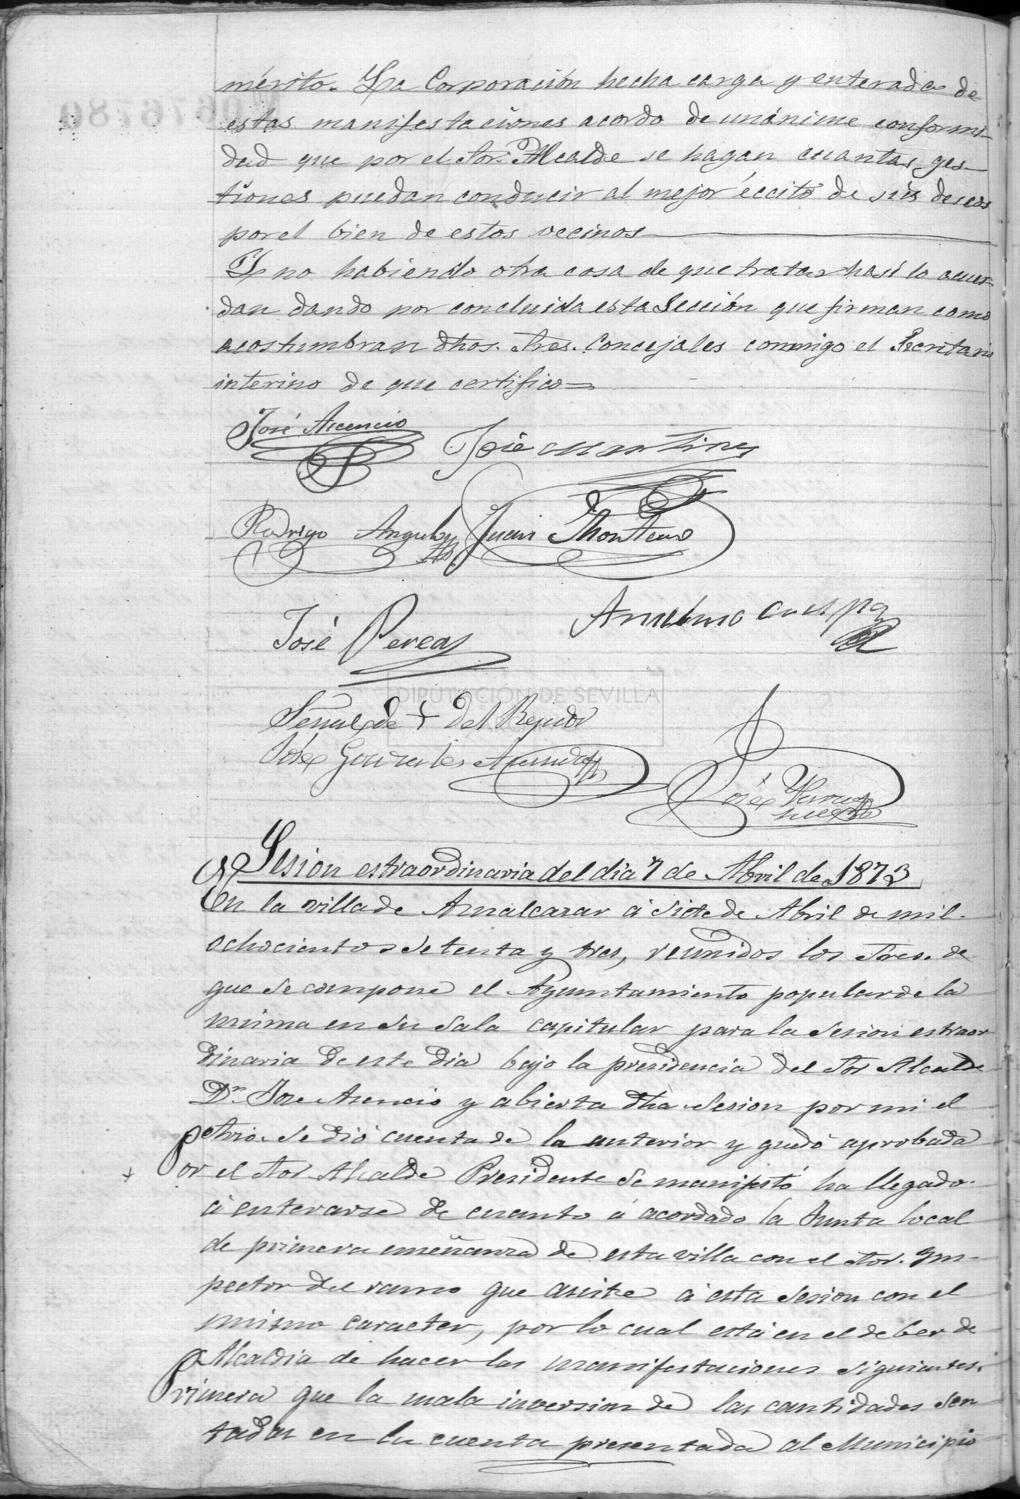 mérito. La Corporación hecha carga y enterada de
estas manifestaciones acordo de unánime conformi-
dad que por el Sor. Alcalde se hagan cuantas ges-
tiones puedan conducir al mejor éccito de sus deseos
por el bien de estos vecinos
Y no habiendo otra cosa de que tratar hasí lo acuer-
dan dando por concluida esta Seccion que firman como
acostumbran dhos. Sres. Concejales conmigo el Secretario
interino de que certifico=
José Asencio José Martinez
Rodrigo Juan Montero
José Pereas Anselmo Crespo
DIPUTACIÓN DE SEVILLA
Señal de + del Regidor
José Gonzales
José
Sesion estraordinaria del dia 7 de Abril de 1873
En la villa de Aznalcazar á Siete de Abril de mil
ochocientos Setenta y tres, reunidos los Sres. de
que se compone el Ayuntamiento popular de la
misma en su Sala capitular para la Sesion estraor
dinaria de este dia bajo la presidencia del Sor Alcalde
Dn. Jose Asencio y abierta dha Sesion por mi el
Srio. Se dió cuenta de la anterior y quedó aprobada
Por el Sor Alcalde Presidente Se manifestó ha llegado
á enterarse de cuanto á acordado la Junta local
de primera enseñanza de esta villa con el Sor. Ins-
pector del ramo que asiste á esta Sesion con el
mismo caracter, por lo cual está en el deber de
Alcaldia de hacer las manifestaciones siguientes:
Primera que la mala inversion de las cantidades Sen
tadas en la cuenta presentada al Municipio